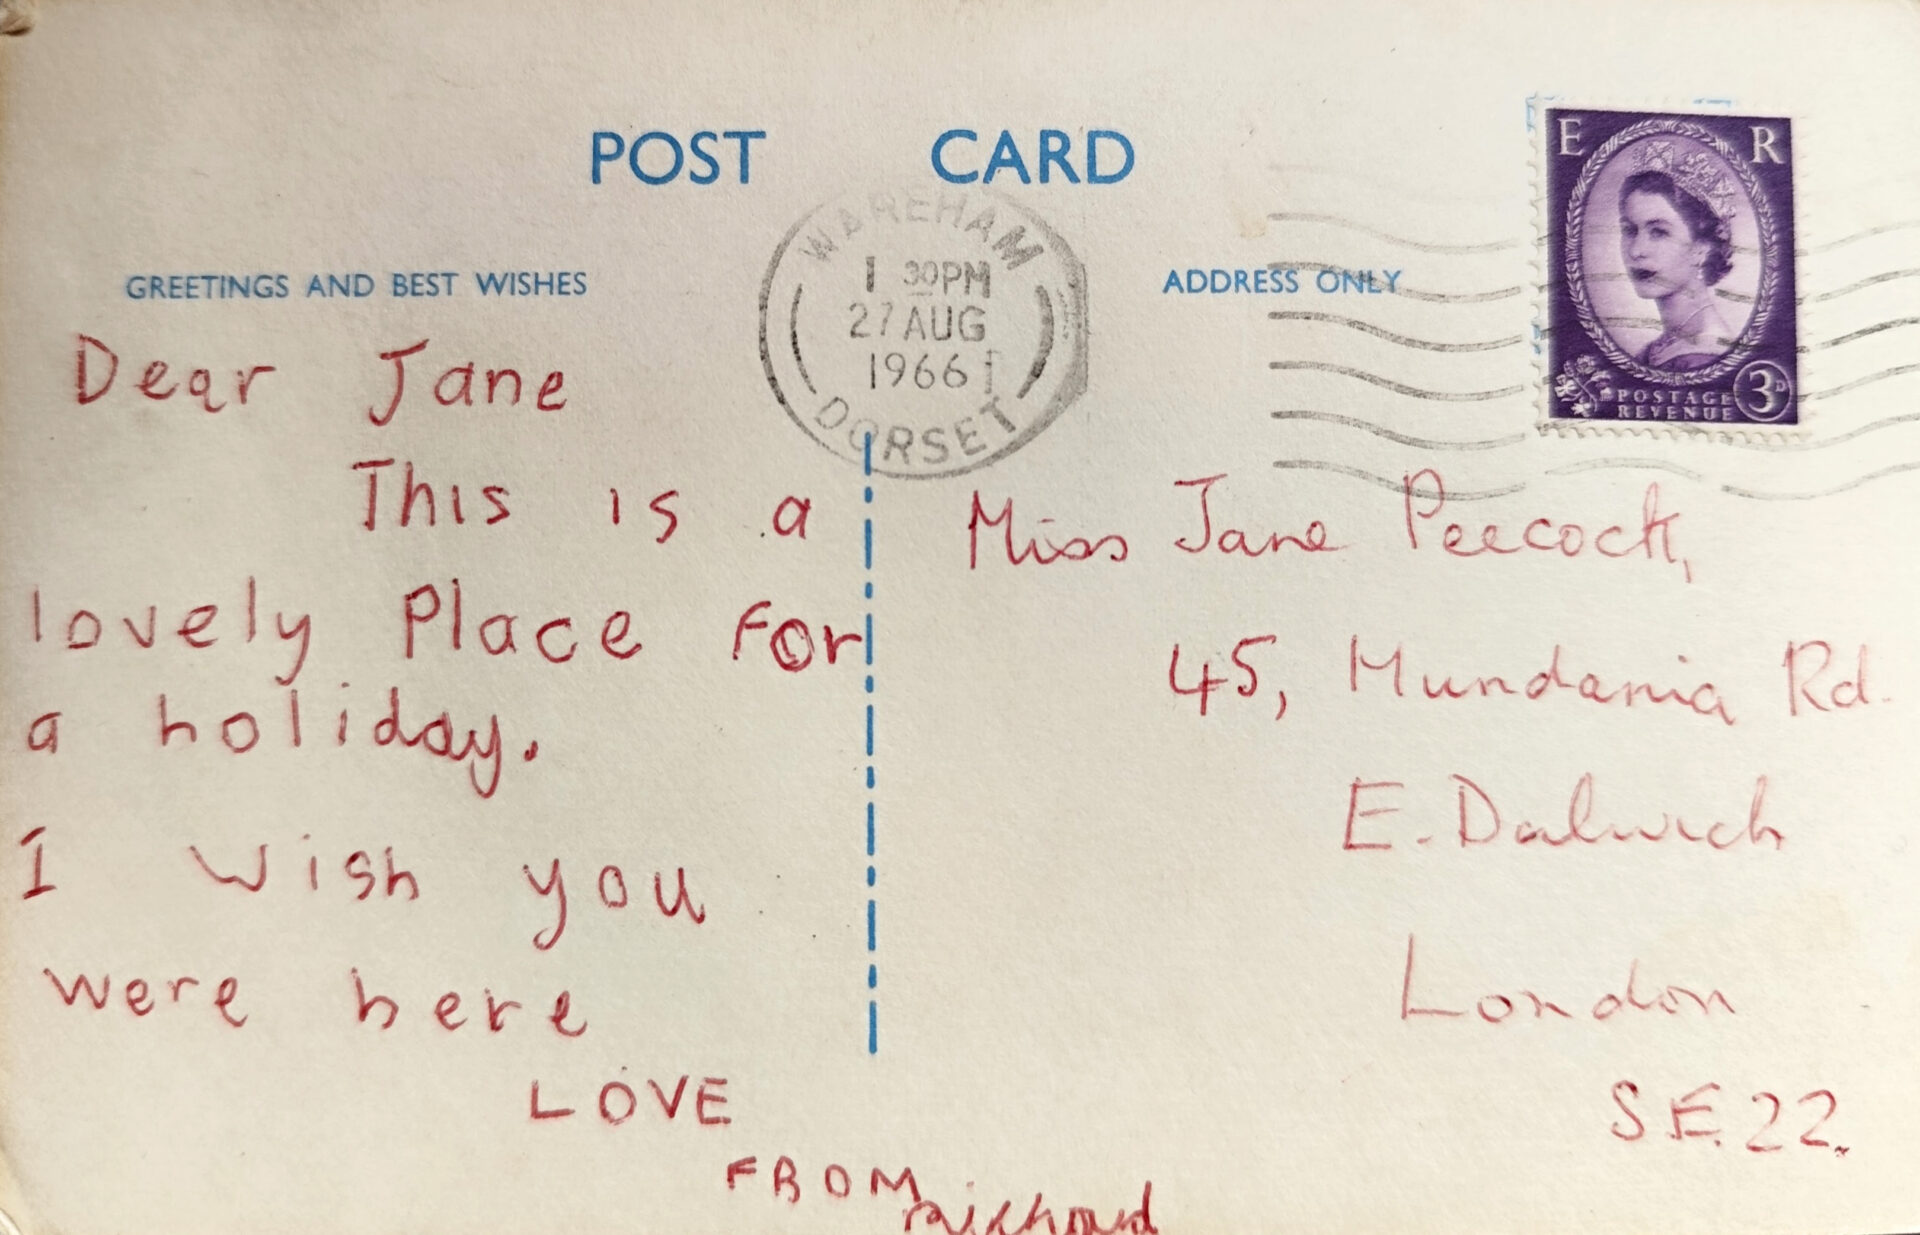 POST CARD
GREETINGS AND BEST WISHES
Dear Jane
This is a
lovely Place For
a holiday.
I wish you
were here
LOVE
FROM
Richard
WAREHAM
1 30PM
27 AUG
1966
DORSET
ADDRESS ONLY
E R
POSTAGE
REVENUE
3D
Miss Jane Peecock,
45, Mundania Rd.
E. Dalwich
London
S.E. 22.